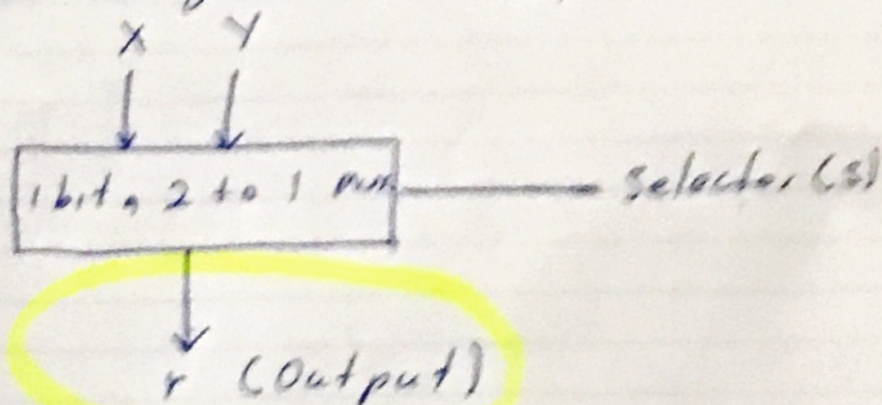 X Y
1 bit, 2 to 1 mux
Selector (s)
r (Output)